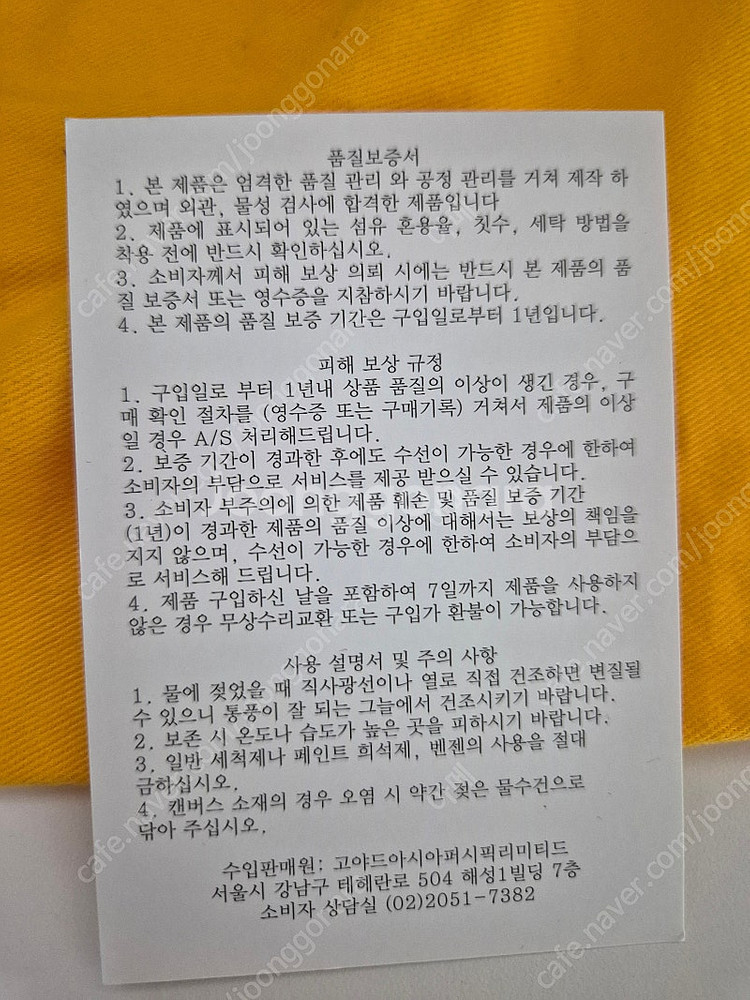 품질보증서
1. 본 제품은 엄격한 품질 관리 와 공정 관리를 거쳐 제작 하
였으며 외관, 물성 검사에 합격한 제품입니다
2. 제품에 표시되어 있는 섬유 혼용율, 칫수, 세탁 방법을
착용 전에 반드시 확인하십시오.
3. 소비자께서 피해 보상 의뢰 시에는 반드시 본 제품의 품
질 보증서 또는 영수증을 지참하시기 바랍니다.
4. 본 제품의 품질 보증 기간은 구입일로부터 1년입니다.
피해 보상 규정
1. 구입일로 부터 1년내 상품 품질의 이상이 생긴 경우, 구
매 확인 절차를 (영수증 또는 구매기록) 거쳐서 제품의 이상
일 경우 A/S 처리해드립니다.
2. 보증 기간이 경과한 후에도 수선이 가능한 경우에 한하여
소비자의 부담으로 서비스를 제공 받으실 수 있습니다.
3. 소비자 부주의에 의한 제품 훼손 및 품질 보증 기간
(1년)이 경과한 제품의 품질 이상에 대해서는 보상의 책임을
지지 않으며, 수선이 가능한 경우에 한하여 소비자의 부담으
로 서비스해 드립니다.
4. 제품 구입하신 날을 포함하여 7일까지 제품을 사용하지
않은 경우 무상수리교환 또는 구입가 환불이 가능합니다.
사용 설명서 및 주의 사항
1. 물에 젖었을 때 직사광선이나 열로 직접 건조하면 변질될
수 있으니 통풍이 잘 되는 그늘에서 건조시키기 바랍니다.
2. 보존 시 온도나 습도가 높은 곳을 피하시기 바랍니다.
3. 일반 세척제나 페인트 희석제, 벤젠의 사용을 절대
금하십시오.
4. 캔버스 소재의 경우 오염 시 약간 젖은 물수건으로
닦아 주십시오.
수입판매원: 고야드아시아퍼시픽리미티드
서울시 강남구 테헤란로 504 해성1빌딩 7층
소비자 상담실 (02)2051-7382
cafe.naver.com/joonggonara